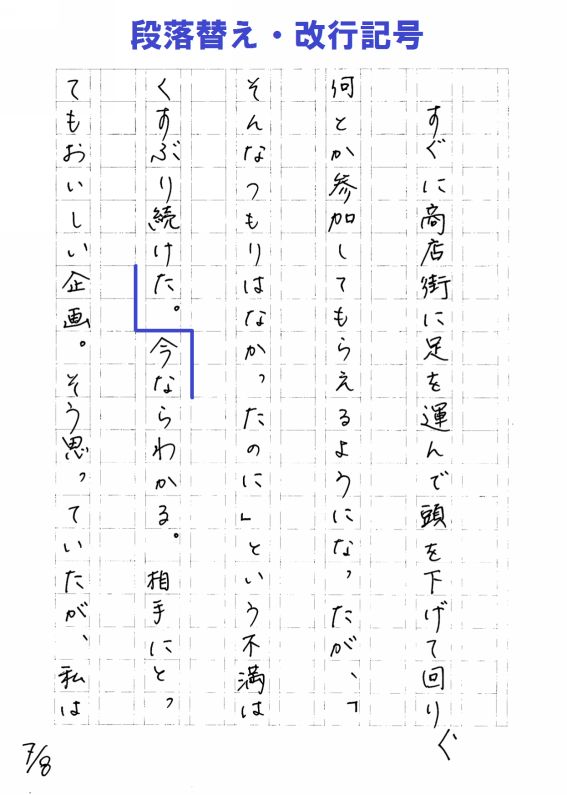 段落替え・改行記号
すぐに商店街に足を運んで頭を下げて回り
何とか参加してもらえるようになったが、「
そんなつもりはなかったのに」という不満は
くすぶり続けた。今ならわかる。相手にとっ
てもおいしい企画。そう思っていたが、私は
7/8